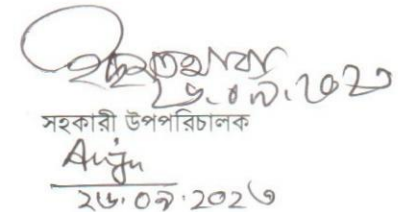 ২৬.০৯.২০২৩
সহকারী উপপরিচালক
Anju
২৬.০৯.২০২৩